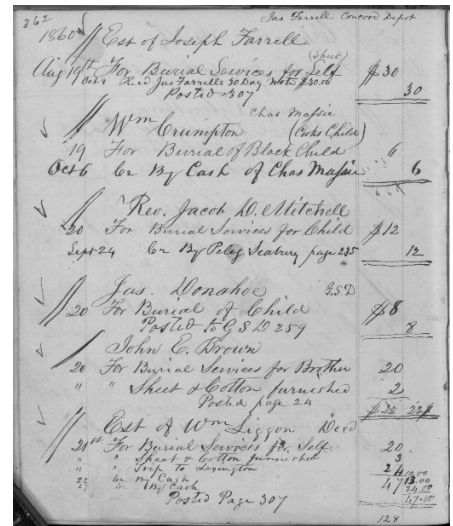 262
Jas Farrell Concord Depot
1860 Est of Joseph Farrell
(Sheet)
Aug 19th For Burial Services for Self $30
Recd Jas Farrells 30 Day Note $30.00
30
Posted 307
Chas Massie
Wm Crumpton (Cooks Child)
19 For Burial of Black Child 6
Oct 6 Cr By Cash of Chas Massie 6
Rev. Jacob D. Mitchell
20 For Burial Services for Child $12
Sept 24 Cr By Peleg Seabury page 235 12
Jas. Donahoe G.S.D
20 For Burial of Child $8
Posted to G S D 259 8
John E. Brown
20 For Burial Services for Brother 20
" " Sheet & Cotton furnished 2
Posted page 24
$22 22
Est of Wm Liggon Decd
21st For Burial Services for Self 20
" " Sheet & Cotton furnished 3
" " Trip to Lexington 24
22 Cr By Cash 47
27 Cr By Cash
47.00
Posted Page 307
128